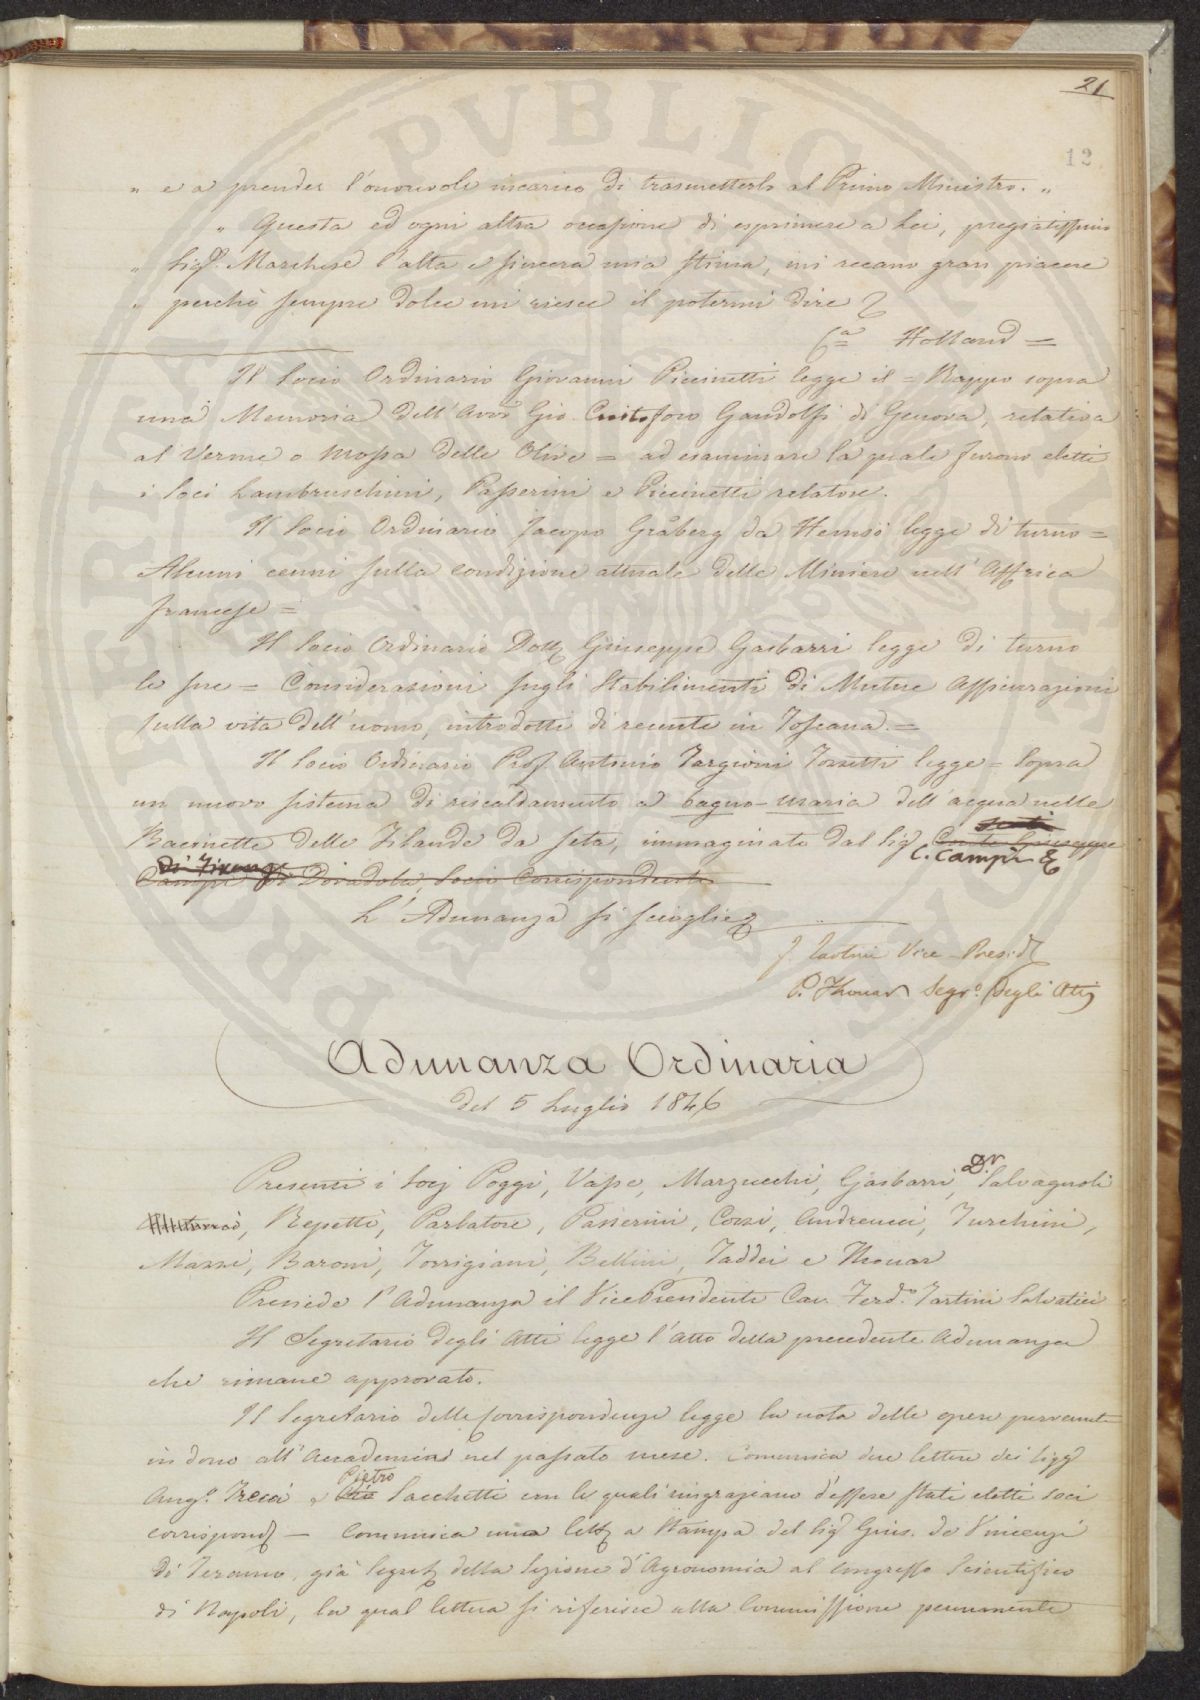 21
12
" e a prender l'onorevole incarico di trasmetterlo al Primo Ministro. "
" Questa ed ogni altra occasione di esprimere a Lei, pregiatissimo
" Sigr. Marchese l'alta e sincera mia stima, mi recano gran piacere
" perchè sempre dolce mi riesce il potermi dire
Holland =
Il Socio Ordinario Giovanni Piccinetti legge il = Rappo sopra
una Memoria dell'Avvo Gio. Cristoforo Gandolfi di Genova, relativa
al Verme o Mosca delle Olive = ad esaminare la quale furono eletti
i Soci Lambruschini, Passerini e Piccinetti relatore.
Il Socio Ordinario Jacopo Gråberg da Hemsö legge di turno =
Alcuni cenni sulla condizione attuale delle Miniere nell'Affrica
francese =
Il Socio Ordinario Dott Giuseppe Gasbarri legge di turno
le sue = Considerazioni sugli Stabilimenti di Mutue Assicurazioni
sulla vita dell'uomo, introdotti di recente in Toscana. =
Il Socio Ordinario Prof. Antonio Targioni Tozzetti legge = Sopra
un nuovo sistema di riscaldamento a bagno-maria dell'acqua nelle
Bacinette delle Filande da seta, immaginato dal Sig Conte Giuseppe
C. Campi &
di Firenze
Campi di Dovadola, Socio Corrispondente
L'Adunanza si scioglie
F. Tartini Vice-Presid
P. Thouar Segr.o degli Atti
Adunanza Ordinaria
del 5 Luglio 1846
Presenti i Socj Poggi, Vase, Marzucchi, Gasbarri, Dr. Salvagnoli
Repetti, Parlatore, Passerini, Cozzi, Andreucci, Turchini,
Mazzi, Baroni, Torrigiani, Bellini, Taddei e Thouar
Presiede l'Adunanza il Vice Presidente Cav. Ferd.o Tartini Salvatici
Il Segretario degli Atti legge l'atto della precedente Adunanza
che rimane approvato.
Il Segretario delle corrispondenze legge la nota delle opere pervenute
in dono all'Accademia nel passato mese. Comunica due lettere dei Sigg
Pietro
Ang.o Frecci e Sacchetti con le quali ringraziano d'essere stati eletti soci
corrispond — Comunica una lett a stampa del Sig Gius. de Vincenzi
di Teramo, già Segret della Sezione d'Agronomia al Congresso Scientifico
di Napoli, la qual lettera si riferisce alla Commissione permanente